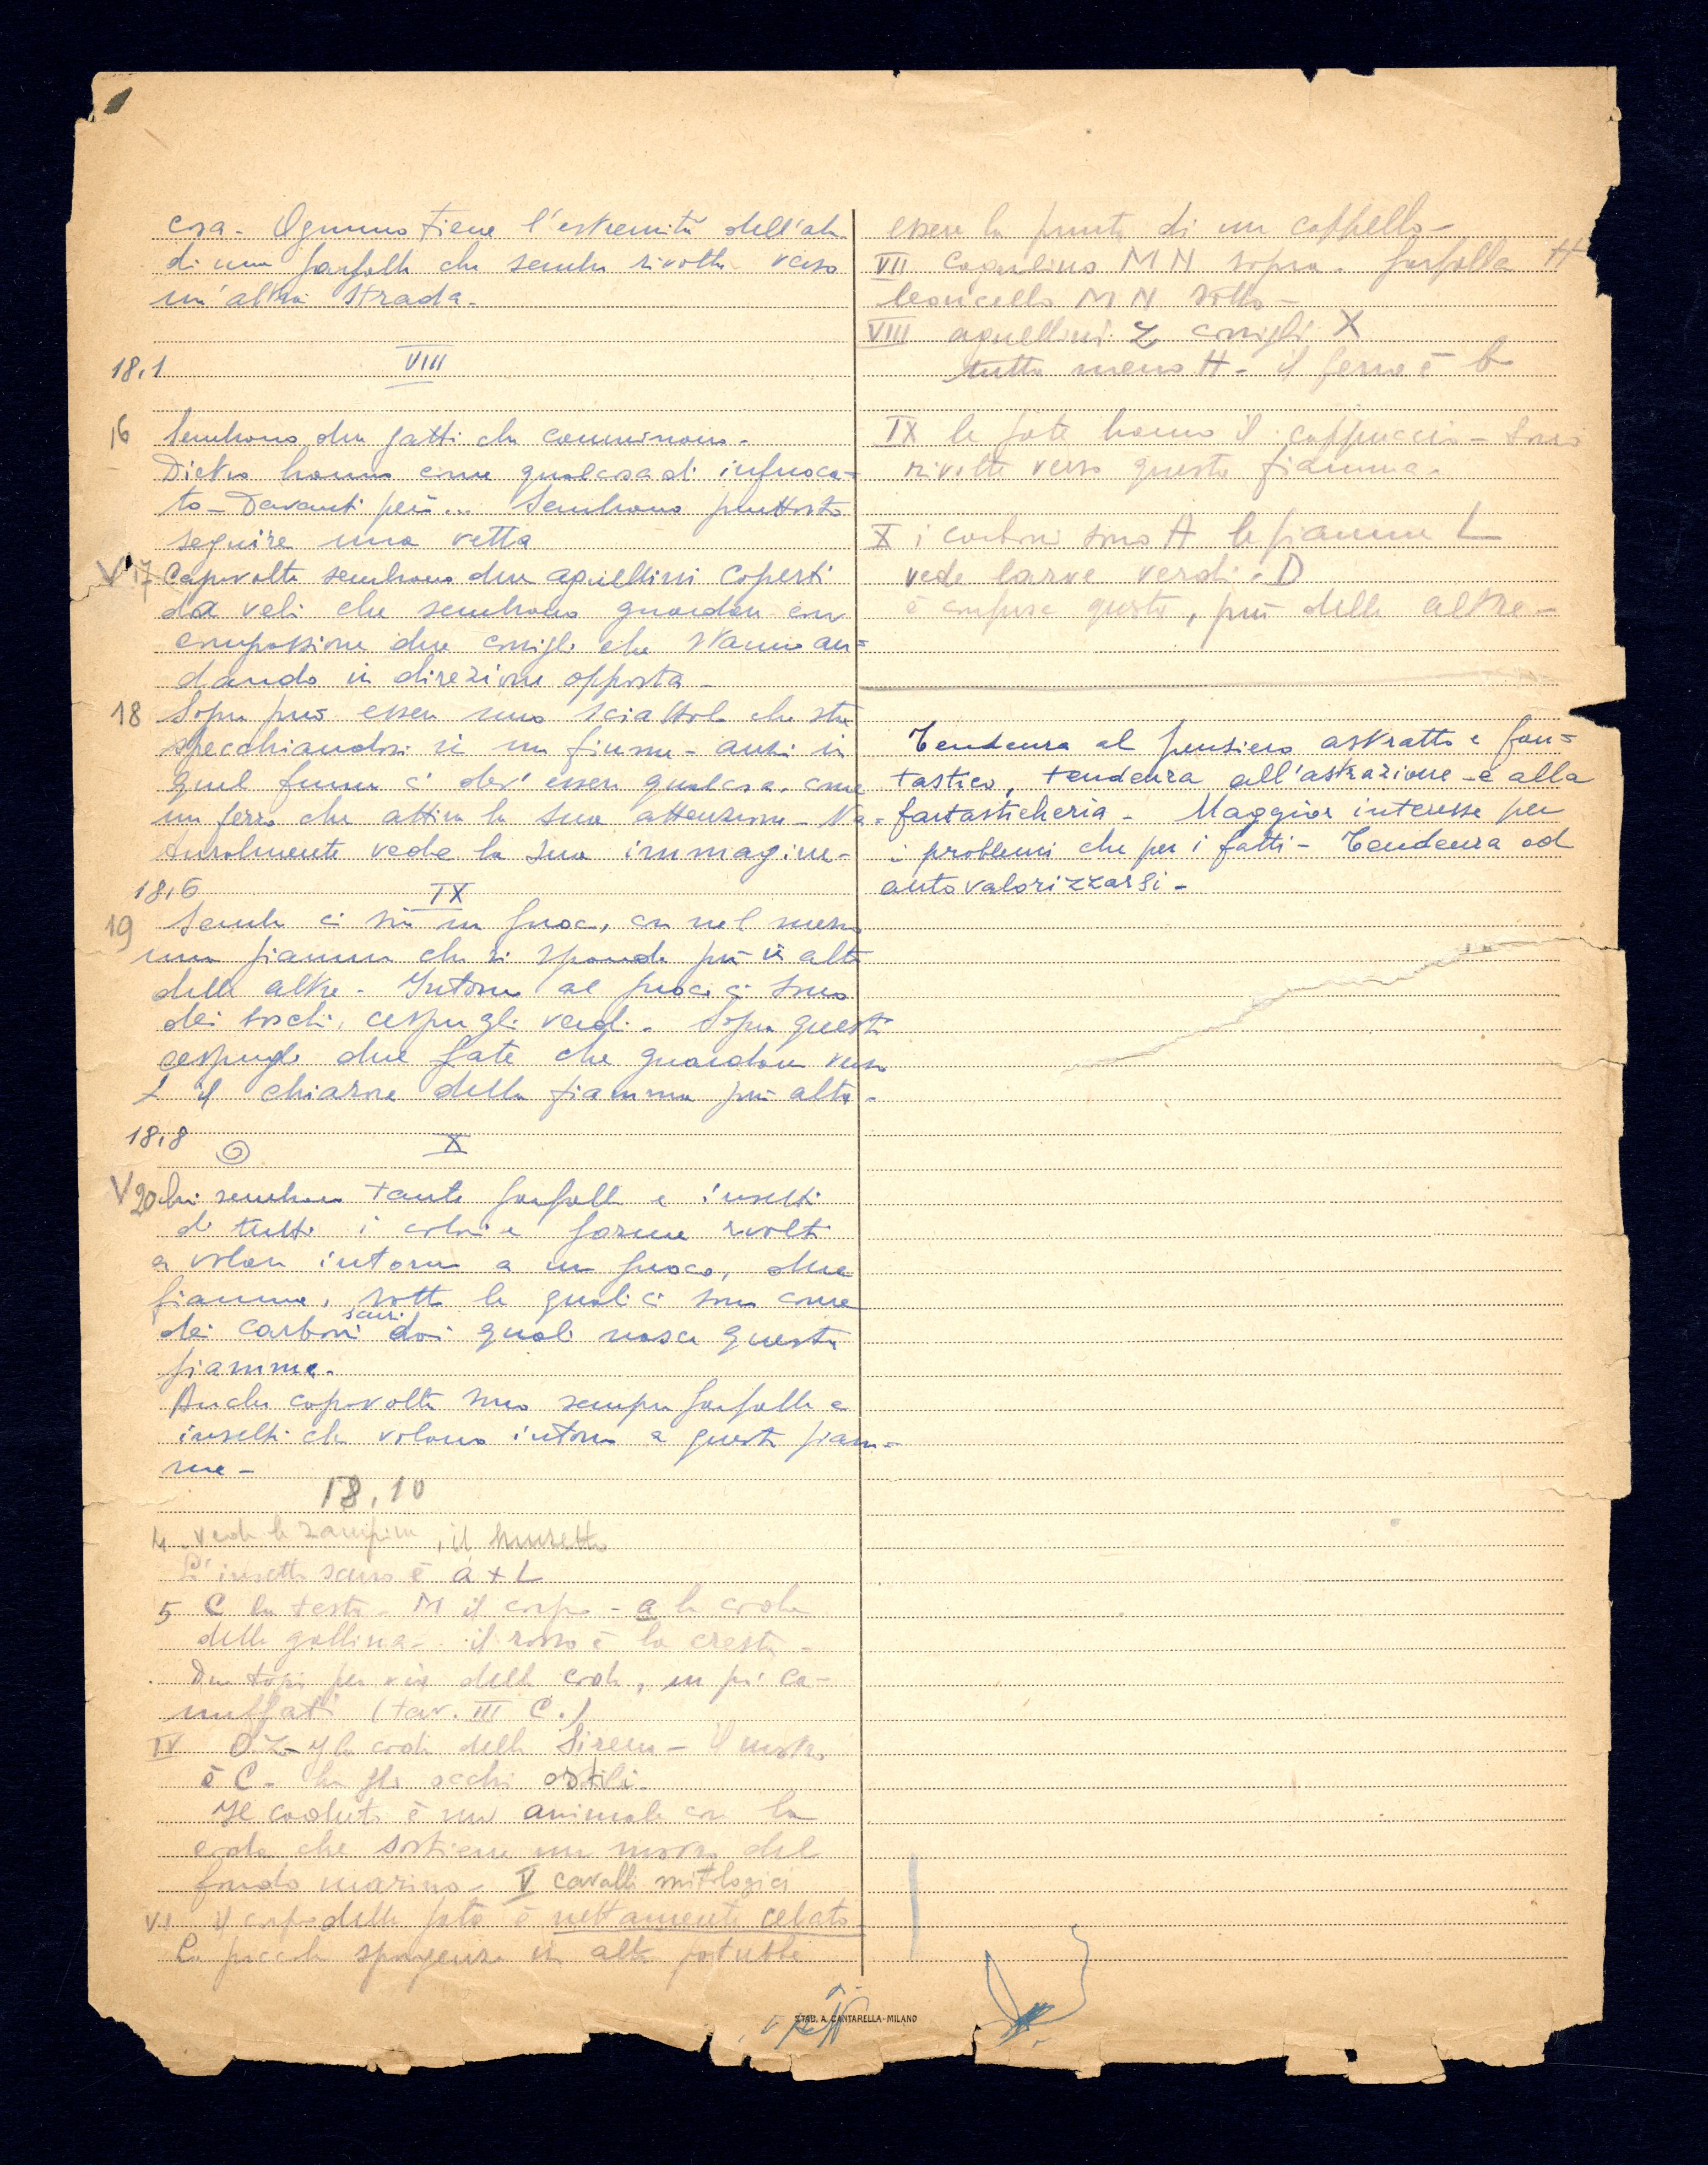 cosa - Ognuno tiene l'estremità dell'ala
di una farfalla che sembra rivolta verso
un'altra strada -
18,1 VIII
16 Sembrano due gatti che camminano -
Dietro hanno come qualcosa di infuoca=
to - Davanti però... Sembrano piuttosto
seguire una vetta
V 17 Capovolta sembrano due agnellini coperti
da veli che sembrano guardare con
compassione due conigli che stanno an=
dando in direzione opposta -
18 Sopra può essere uno sciattolo che sta
specchiandosi in un fiume - anzi in
quel fiume ci dev'essere qualcosa come
un ferro che attira la sua attenzione - Na=
turalmente vede la sua immagine -
18,6 IX
19 Sembra ci sia un fuoco, con nel mezzo
una fiamma che si spande più in alto
delle altre - Intorno al fuoco ci sono
dei boschi, cespugli verdi - Sopra questi
cespugli due fate che guardano verso
il chiarore della fiamma più alta -
18,8 X
V 20 Qui sembrano tante farfalle e insetti
di tutti i colori e forme rivolti
a volare intorno a un fuoco, due
fiamme, sotto le quali ci sono come
dei carboni scuri dai quali nasce questa
fiamma -
Anche capovolta sono sempre farfalle e
insetti che volano intorno a questa fiam=
ma -
18,10
4 - Vede le zampine, il musetto
L'insetto scuro è a + L
5 C la testa - M il corpo - a la coda
della gallina - il rosso è la cresta -
Due topi per via della coda, un po' ca=
muffati (tav. III C.)
IV la coda della Sirena - il mostro
è C - ha gli occhi ostili -
Il caduto è un animale con la
coda che sostiene un mostro del
fondo marino - V cavalli mitologici
VI il corpo delle fate è nettamente celato
La piccola sporgenza in alto potrebbe
essere la punta di un cappello -
VII cagnolino M N sopra - farfalla H
leoncello M N sotto -
VIII agnellini Z conigli X
tutto meno H - il ferro è b
IX le fate hanno il cappuccio - Sono
rivolte verso questa fiamma -
X i carboni sono A le fiamme L
vede larve verdi - D
è confusa questa, più delle altre -
Tendenza al pensiero astratto e fan=
tastico, tendenza all'astrazione - e alla
fantasticheria - Maggior interesse per
i problemi che per i fatti - Tendenza ad
autovalorizzarsi -
STAB. A. CANTARELLA - MILANO